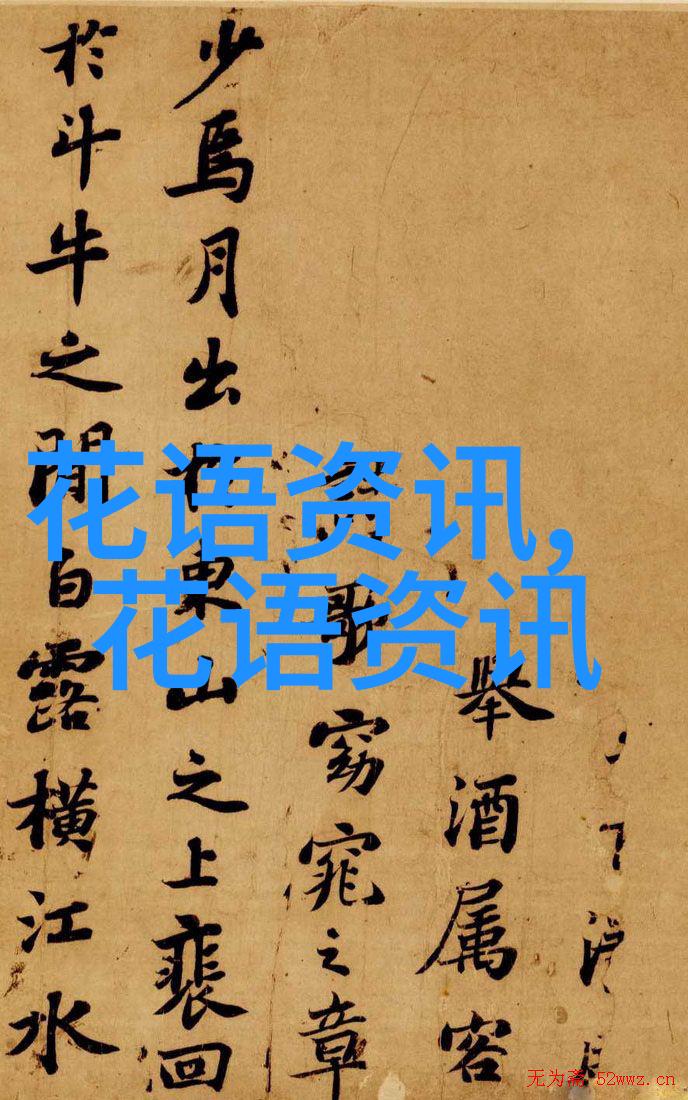 花语资讯,
花语资讯
舉酒属客
歌窈窕之章
少焉月出於東山之上裴回
於斗牛之閒白露橫江水
无为斋 52wwz.cn